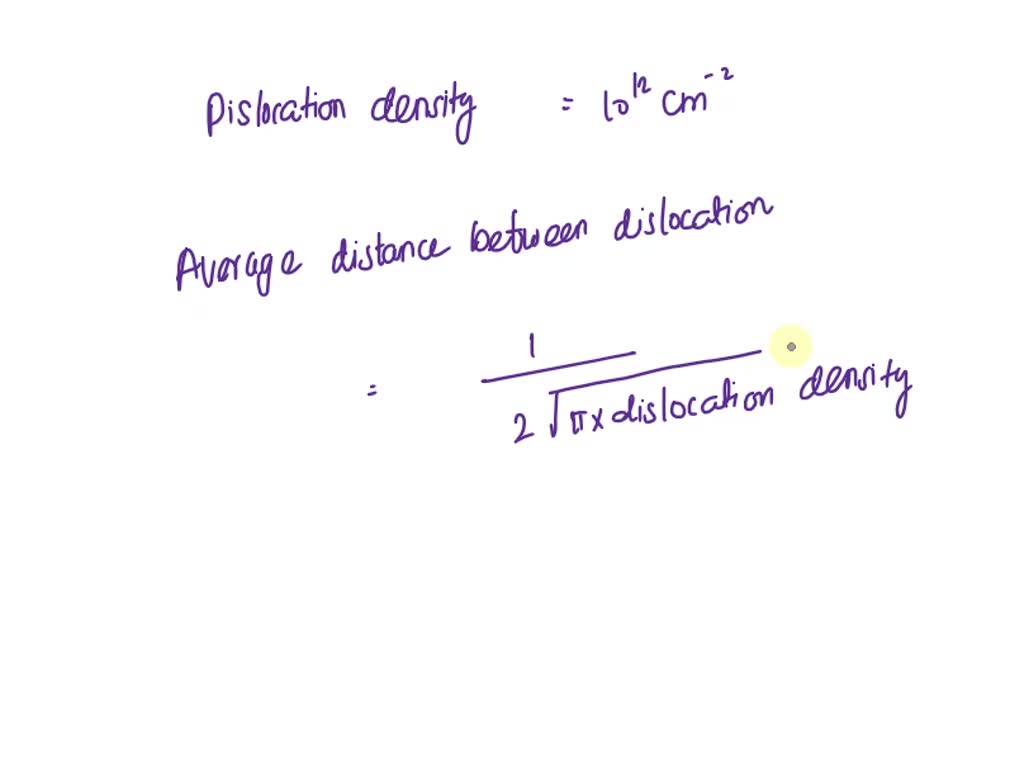 Dislocation density = 10¹² cm⁻²
Average distance between dislocation
= 1 / 2 √π x dislocation density